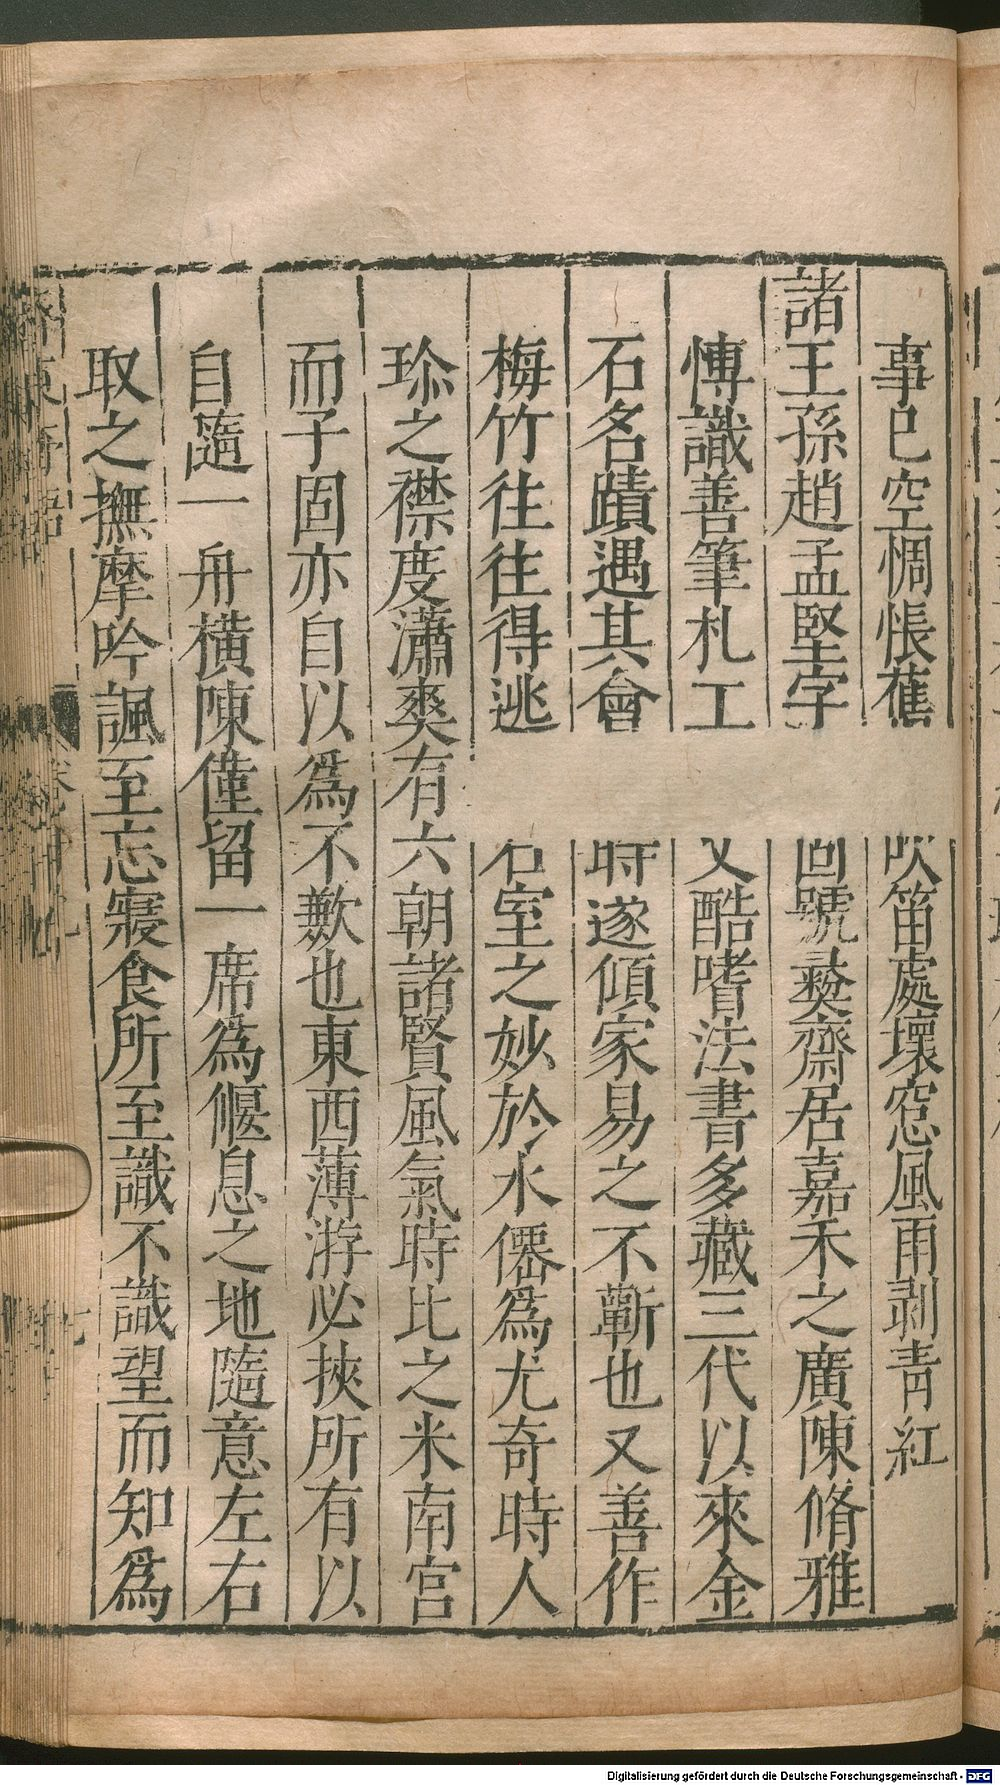 事已空惆悵舊吹笛處壞窓風雨剥青紅
諸王孫趙孟堅字固號彝齋居嘉禾之廣陳脩雅
愽識善筆札工文酷嗜法書多藏三代以來金
石名蹟遇其會時遂傾家易之不蘄也又善作
梅竹往往得逃石室之妙於水僊爲尤奇時人
珍之襟度瀟爽有六朝諸賢風氣時比之米南宫
而子固亦自以爲不歉也東西薄游必挾所有以
自隨一舟橫陳僅留一席爲偃息之地隨意左右
取之撫摩吟諷至忘寢食所至識不識望而知爲
Digitalisierung gefördert durch die Deutsche Forschungsgemeinschaft - DFG